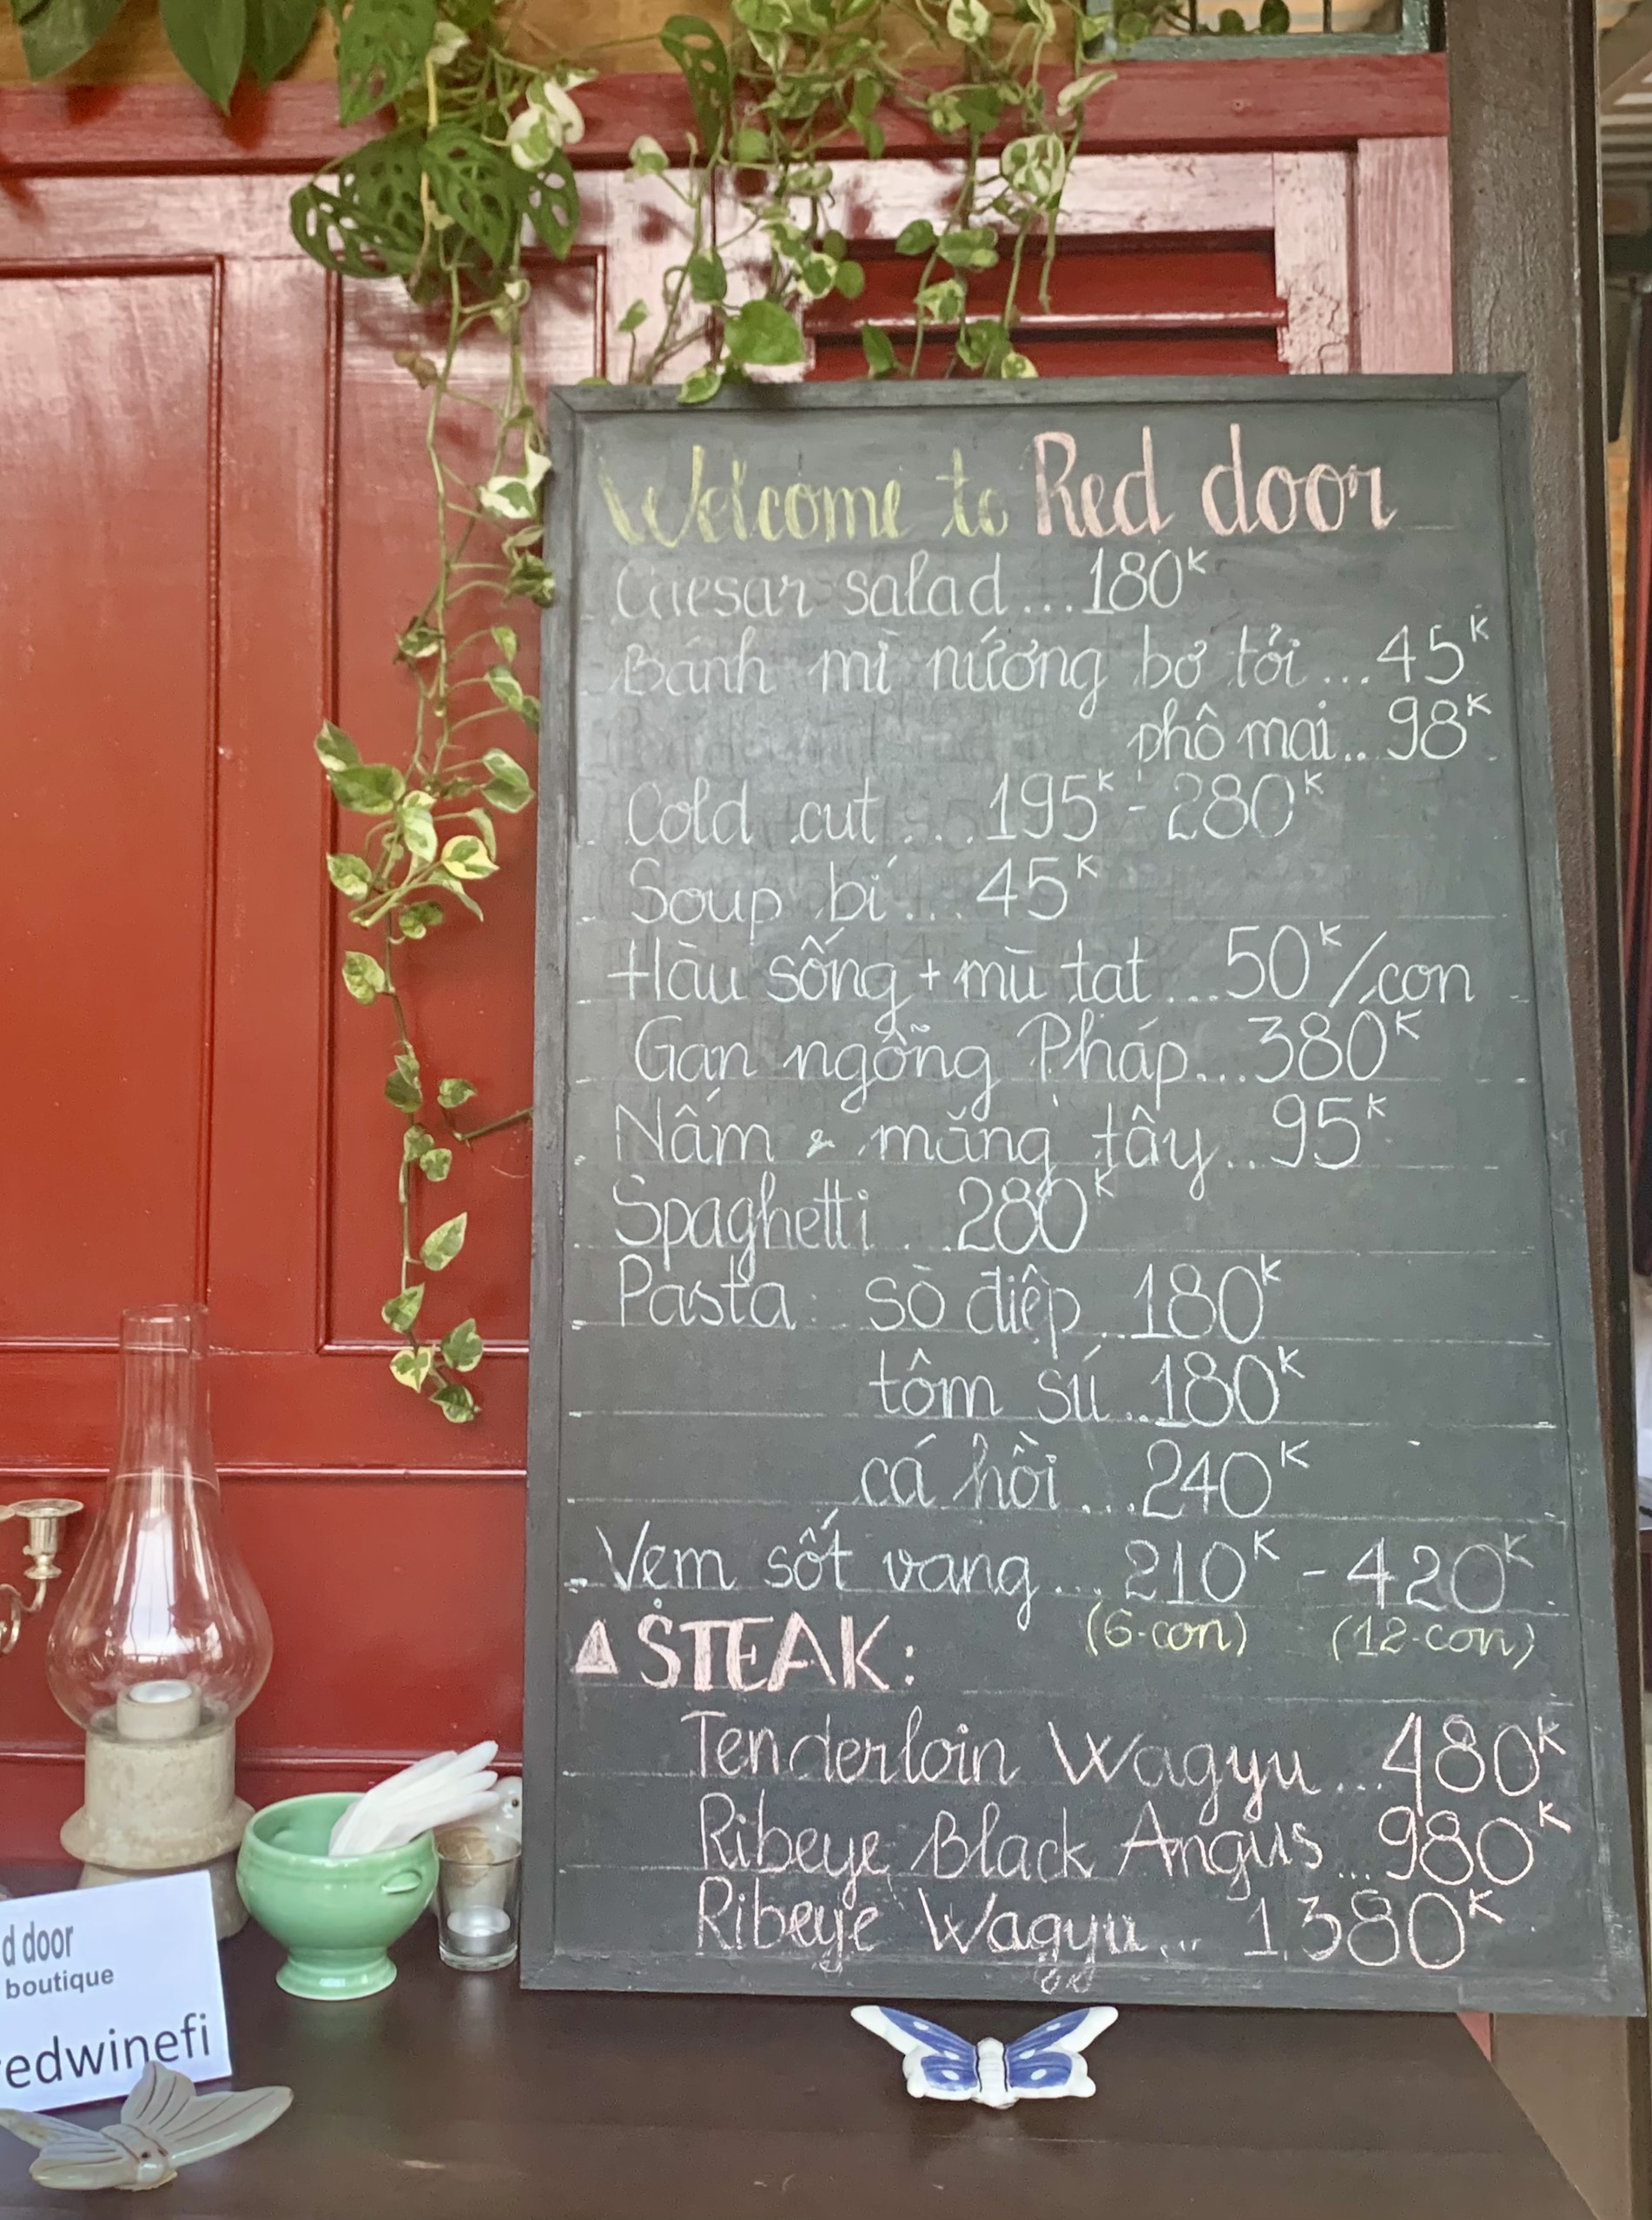 Welcome to Red door
Caesar salad...180K
Bánh mì nướng bơ tỏi...45K
phô mai..98K
Cold cut....195K-280K
Soup bí...45K
Hàu sống+mù tạt...50K/con
Gan ngỗng Pháp...380K
Nấm & măng tây..95K
Spaghetti...280K
Pasta sò điệp..180K
tôm sú..180K
cá hồi...240K
Vẹm sốt vang...210K-420K
(6-con) (12-con)
STEAK:
Tenderloin Wagyu...480K
Ribeye Black Angus...980K
Ribeye Wagyu...1.380K
d door
boutique
edwinefi